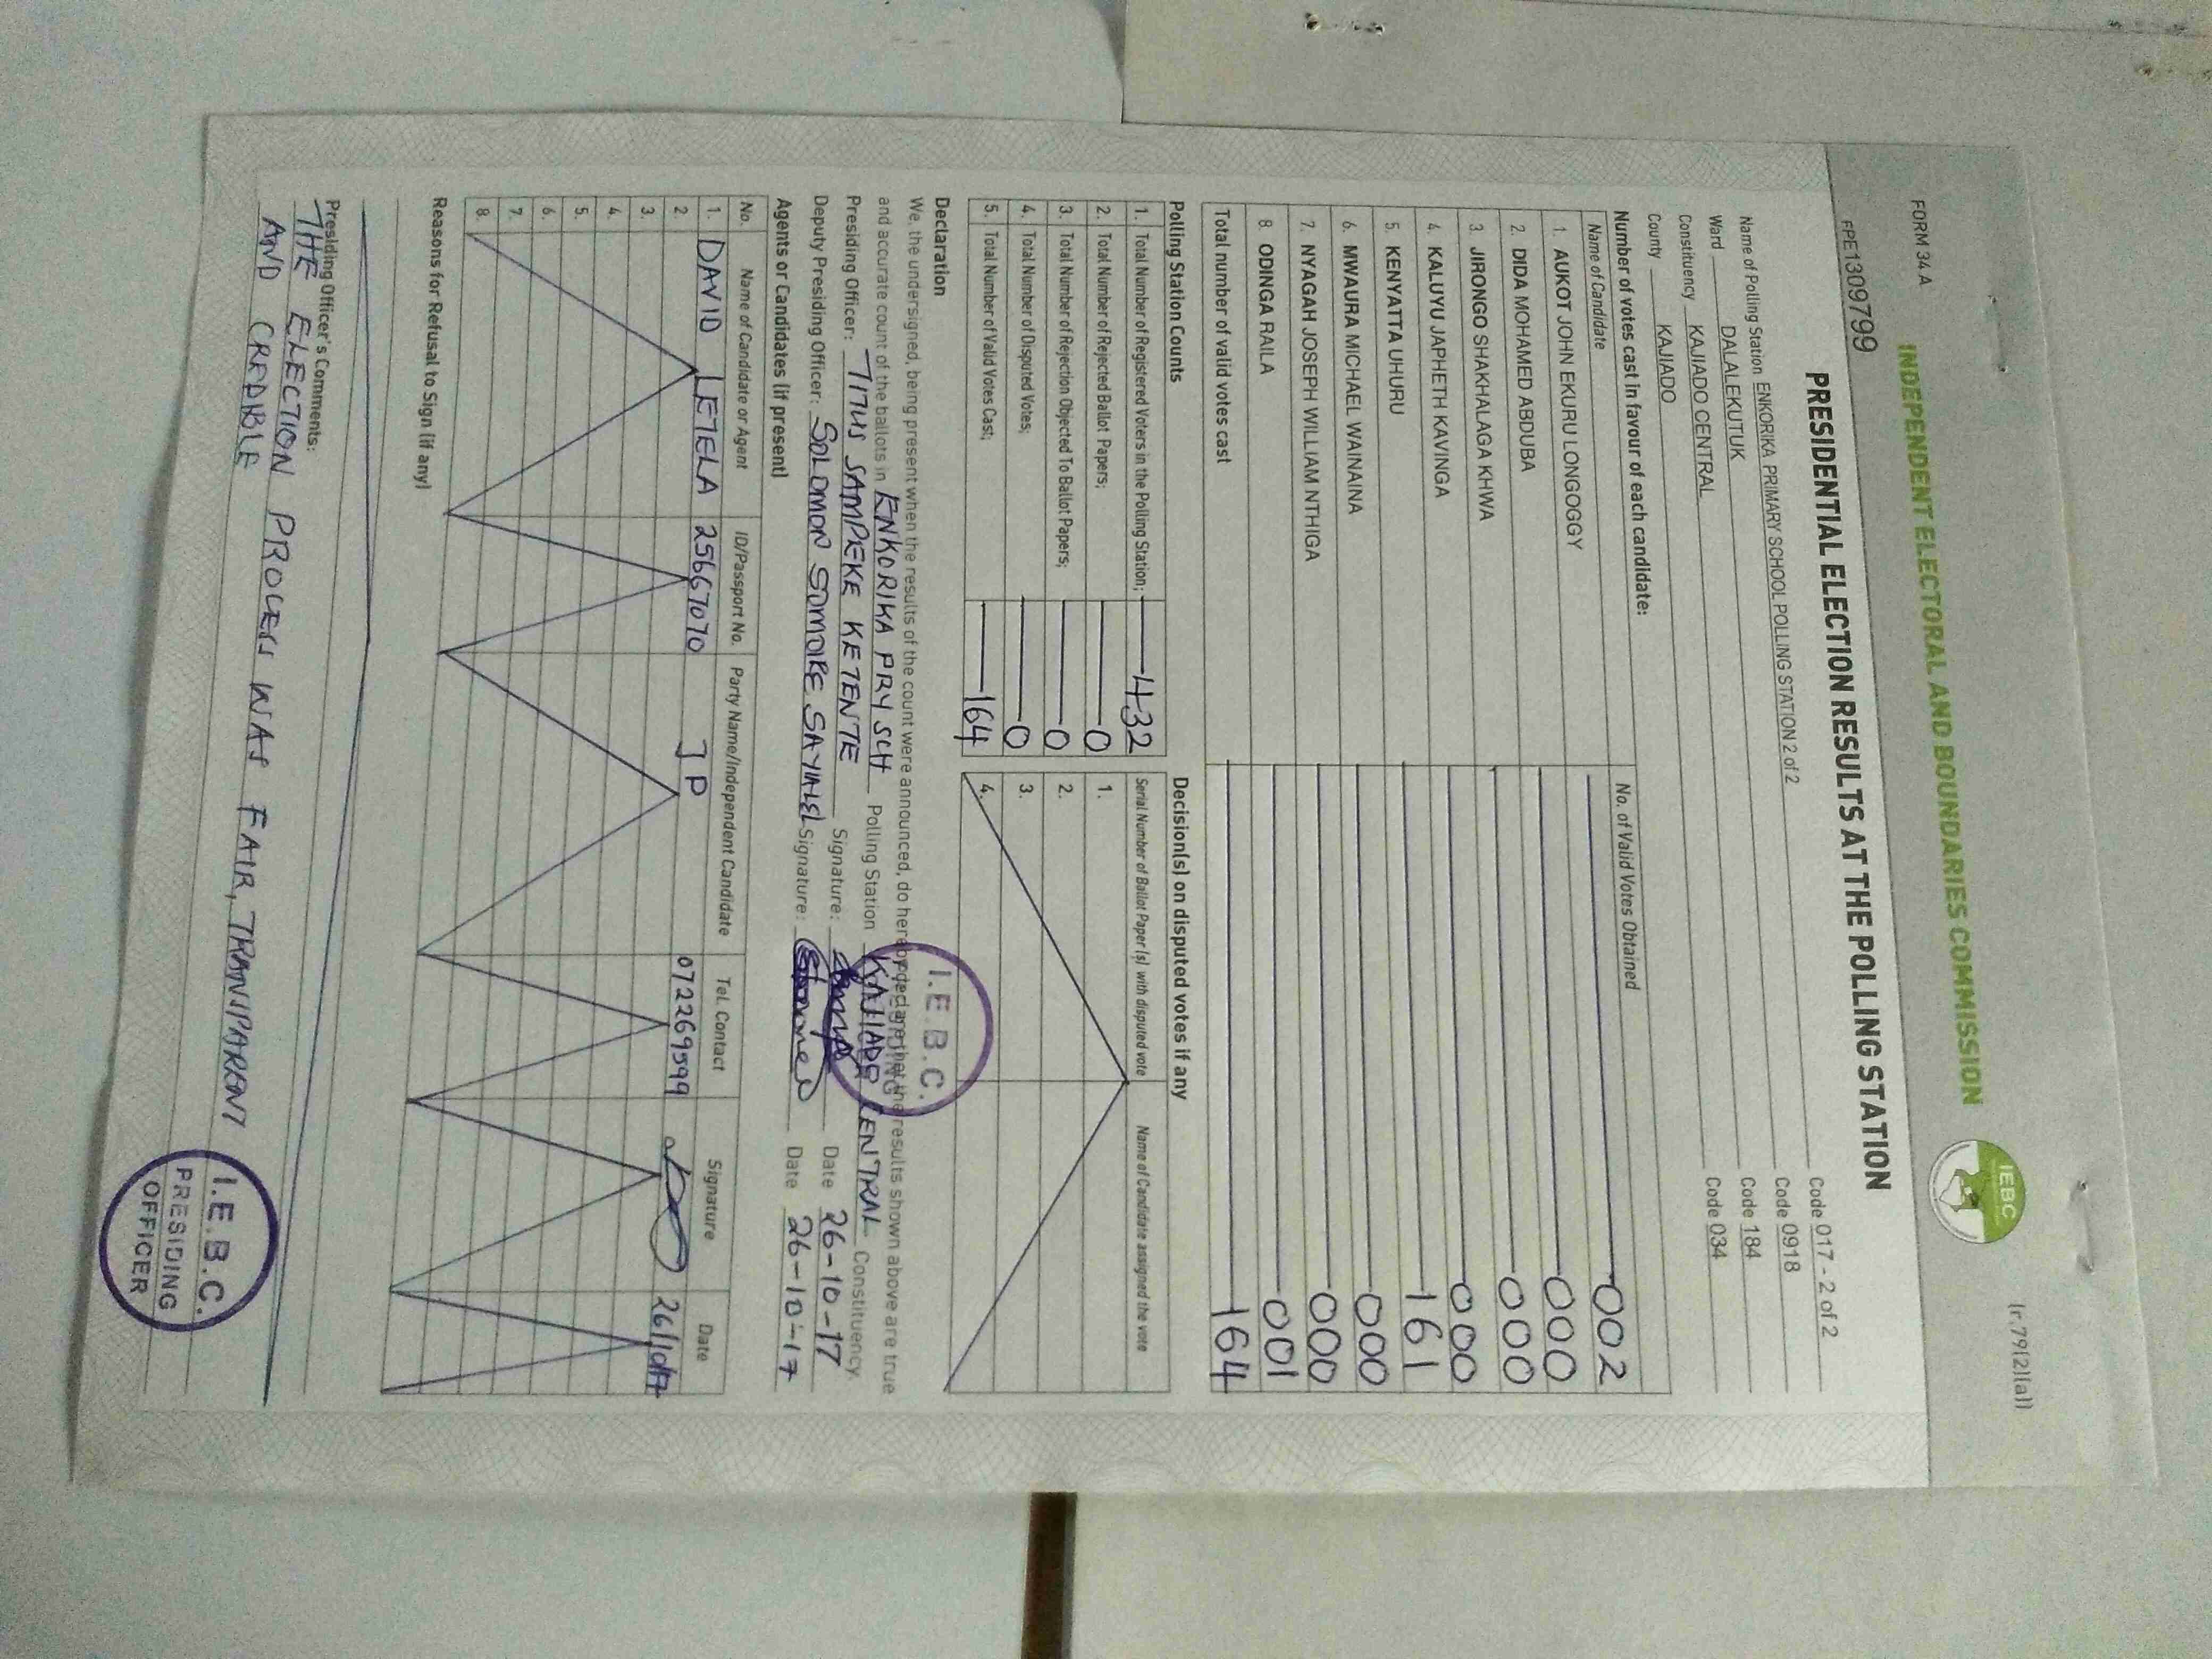 FORM 34 A
(r.79(2)(a))
INDEPENDENT ELECTORAL AND BOUNDARIES COMMISSION
IEBC
PRE1309799
PRESIDENTIAL ELECTION RESULTS AT THE POLLING STATION
Name of Polling Station ENKORIKA PRIMARY SCHOOL POLLING STATION 2 of 2 Code 017 - 2 of 2
Ward DALALEKUTUK Code 0918
Constituency KAJIADO CENTRAL Code 184
County KAJIADO Code 034
Number of votes cast in favour of each candidate:
Name of Candidate No. of Valid Votes Obtained
1. AUKOT JOHN EKURU LONGOGGY 002
2. DIDA MOHAMED ABDUBA 000
3. JIRONGO SHAKHALAGA KHWA 000
4. KALUYU JAPHETH KAVINGA 000
5. KENYATTA UHURU 161
6. MWAURA MICHAEL WAINAINA 000
7. NYAGAH JOSEPH WILLIAM NTHIGA 000
8. ODINGA RAILA 001
Total number of valid votes cast 164
Polling Station Counts
1. Total Number of Registered Voters in the Polling Station; 432
2. Total Number of Rejected Ballot Papers; 0
3. Total Number of Rejection Objected To Ballot Papers; 0
4. Total Number of Disputed Votes; 0
5. Total Number of Valid Votes Cast; 164
Decision(s) on disputed votes if any
Serial Number of Ballot Paper (s) with disputed vote Name of Candidate assigned the vote
1.
2.
3.
4.
Declaration
We, the undersigned, being present when the results of the count were announced, do hereby declare that the results shown above are true
and accurate count of the ballots in ENKORIKA PRY SCH Polling Station KAJIADO CENTRAL Constituency
Presiding Officer: TITUS SAMPEKE KETENTE Signature: Date 26-10-17
Deputy Presiding Officer: SOLOMON SOMOIRE Signature: Date 26-10-17
I.E.B.C.
Agents or Candidates (if present)
No. Name of Candidate or Agent ID/Passport No. Party Name/Independent Candidate Tel. Contact Signature Date
1. DAVID LETELA 25667070 JP 072269599 26/10/17
2.
3.
4.
5.
6.
7.
8.
Reasons for Refusal to Sign (if any)
Presiding Officer's Comments:
THE ELECTION PROCESS WAS FAIR, TRANSPARENT
AND CREDIBLE
I.E.B.C.
PRESIDING
OFFICER